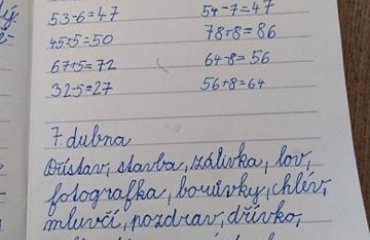 53-6=47 54-7=47
45+5=50 78+8=86
67+5=72 64-8=56
32-5=27 56+8=64
7. dubna
Přístav, stavba, zálivka, lov,
fotografka, borůvky, chlév,
mluvčí, pozdrav, dřívko,